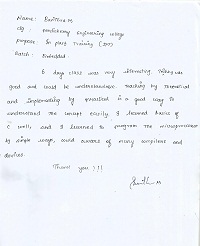 Name:
clg : Pondicherry Engineering college
purpose: In plant Training (IPT)
Batch: Embedded
6 days class was very interesting. Teaching was
good and could be understandable. Teaching by theoretical
and implementing by practical is a good way to
understand the concept easily. I learned basics of
C well, and I learned to program the microprocessor
by simple ways, could aware of many compilers and
devices.
Thank you !!!